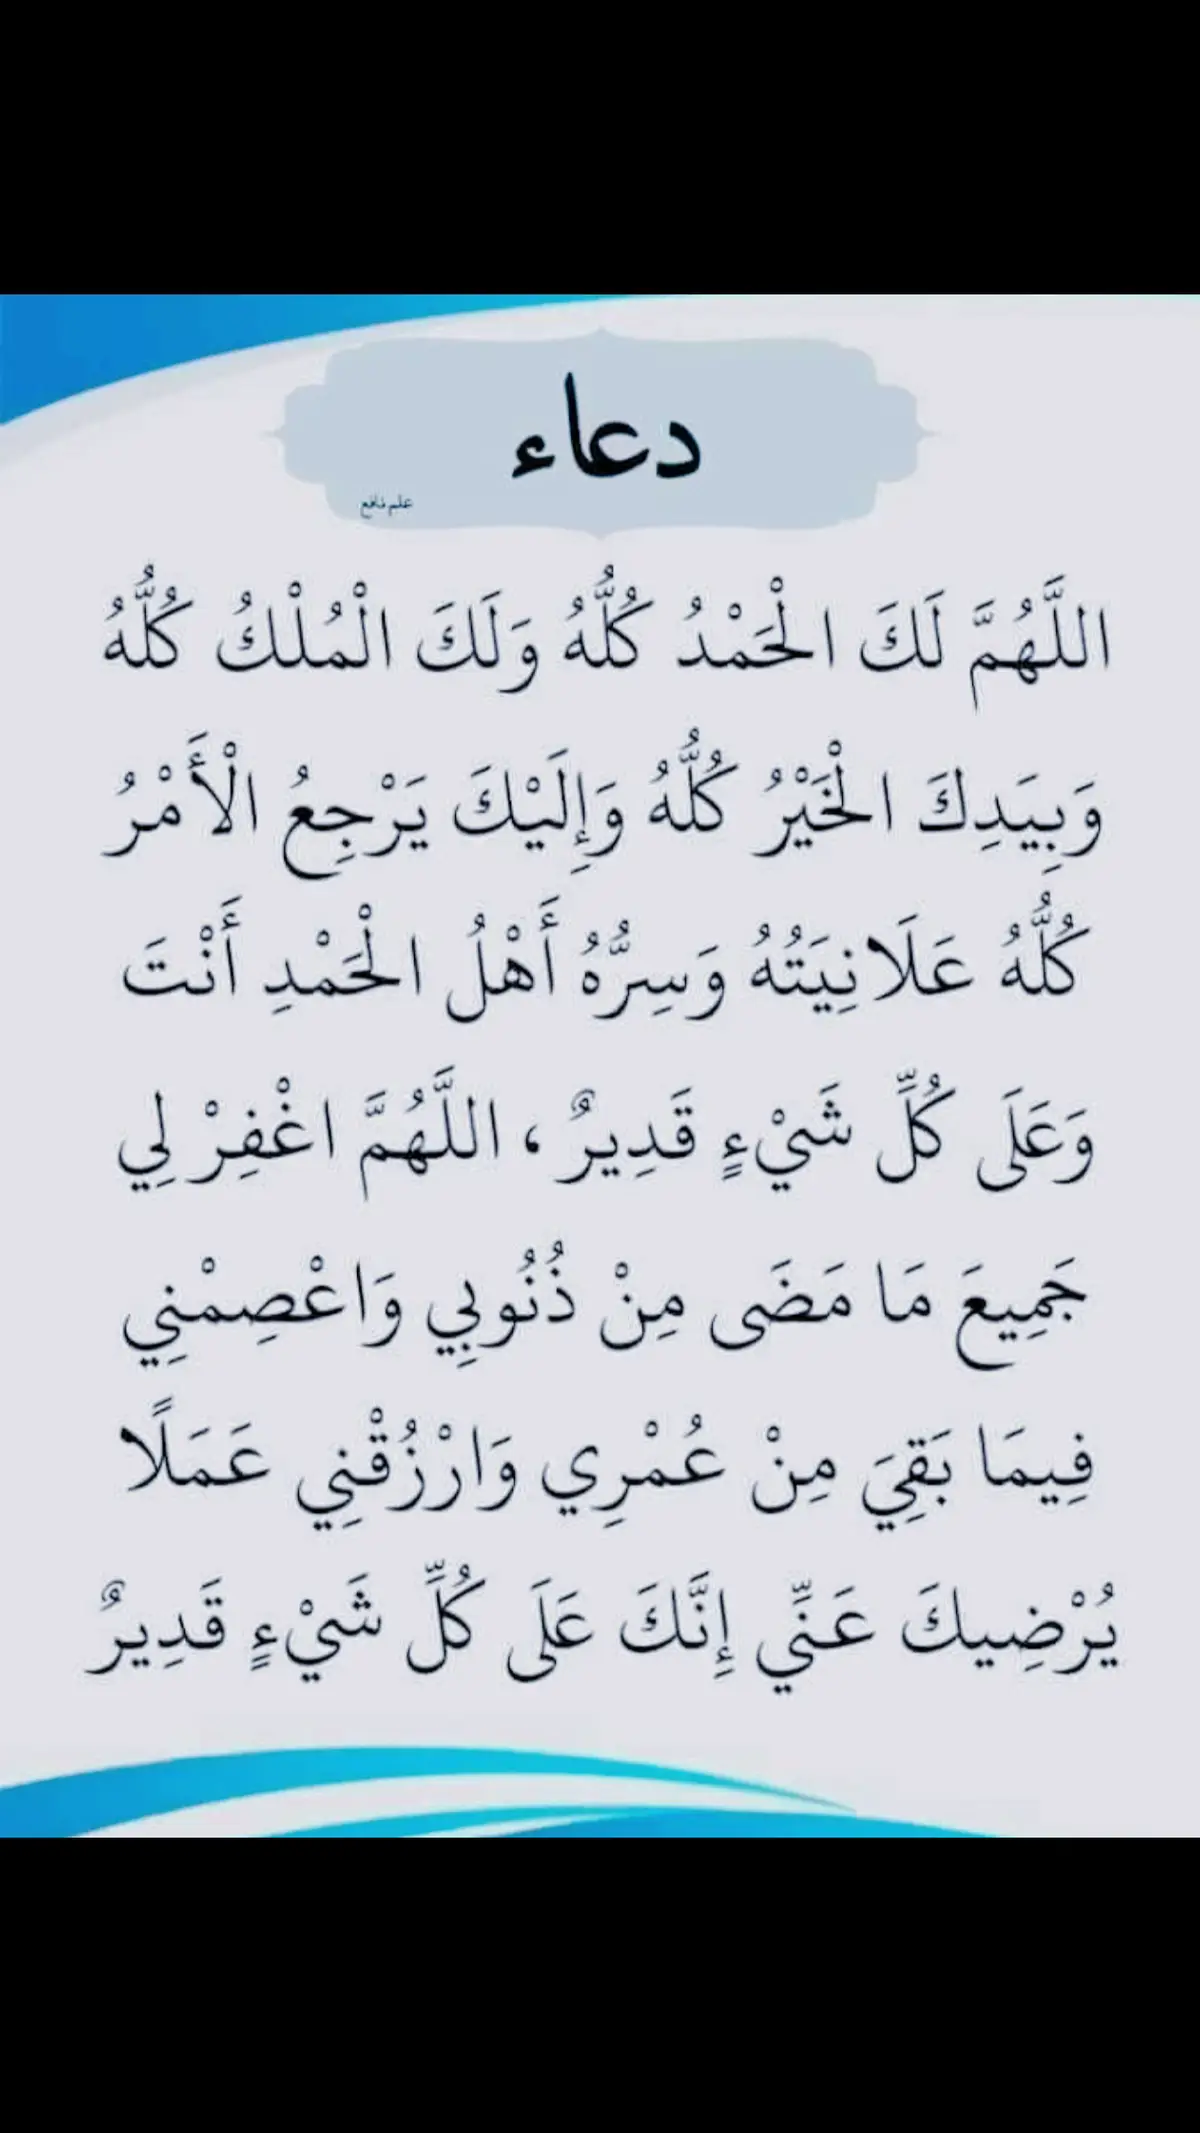 دعاء
علم نافع
اللَّهُمَّ لَكَ الْحَمْدُ كُلُّهُ وَلَكَ الْمُلْكُ كُلُّهُ
وَبِيَدِكَ الْخَيْرُ كُلُّهُ وَإِلَيْكَ يَرْجِعُ الْأَمْرُ
كُلُّهُ عَلَانِيَتُهُ وَسِرُّهُ أَهْلُ الْحَمْدِ أَنْتَ
وَعَلَى كُلِّ شَيْءٍ قَدِيرٌ ، اللَّهُمَّ اغْفِرْ لِي
جَمِيعَ مَا مَضَى مِنْ ذُنُوبِي وَاعْصِمْنِي
فِيمَا بَقِيَ مِنْ عُمْرِي وَارْزُقْنِي عَمَلًا
يُرْضِيكَ عَنِّي إِنَّكَ عَلَى كُلِّ شَيْءٍ قَدِيرٌ